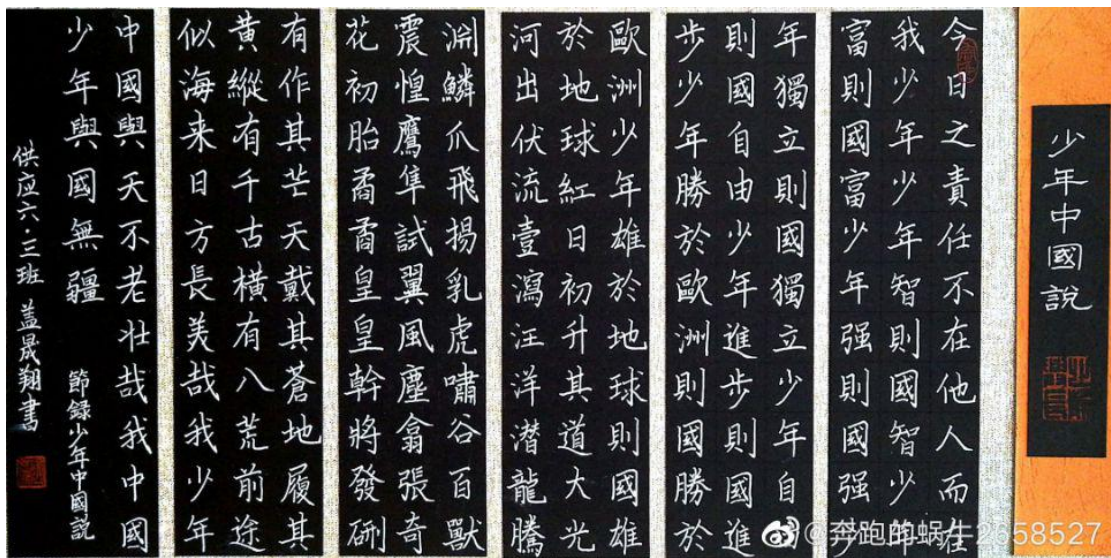 少年中國説
今日之責任不在他人而在
我少年少年智則國智少年
富則國富少年强則國强少
年獨立則國獨立少年自由
則國自由少年進步則國進
步少年勝於歐洲則國勝於
歐洲少年雄於地球則國雄
於地球紅日初升其道大光
河出伏流壹瀉汪洋潜龍騰
淵鱗爪飛揚乳虎嘯谷百獸
震惶鷹隼試翼風塵翕張奇
花初胎矞矞皇皇幹將發硎
有作其芒天戴其蒼地履其
黄縱有千古横有八荒前途
似海来日方長美哉我少年
中國與天不老壯哉我中國
少年與國無疆
節錄少年中國説
供应六·三班 盖晟翔書
@奔跑的蜗牛2658527